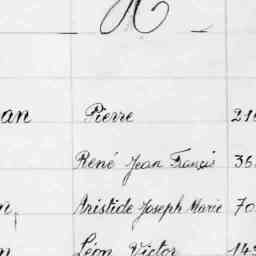 H
an Pierre 21
René Jean Francis 36
n, Aristide Joseph Marie 70
n Léon Victor 14